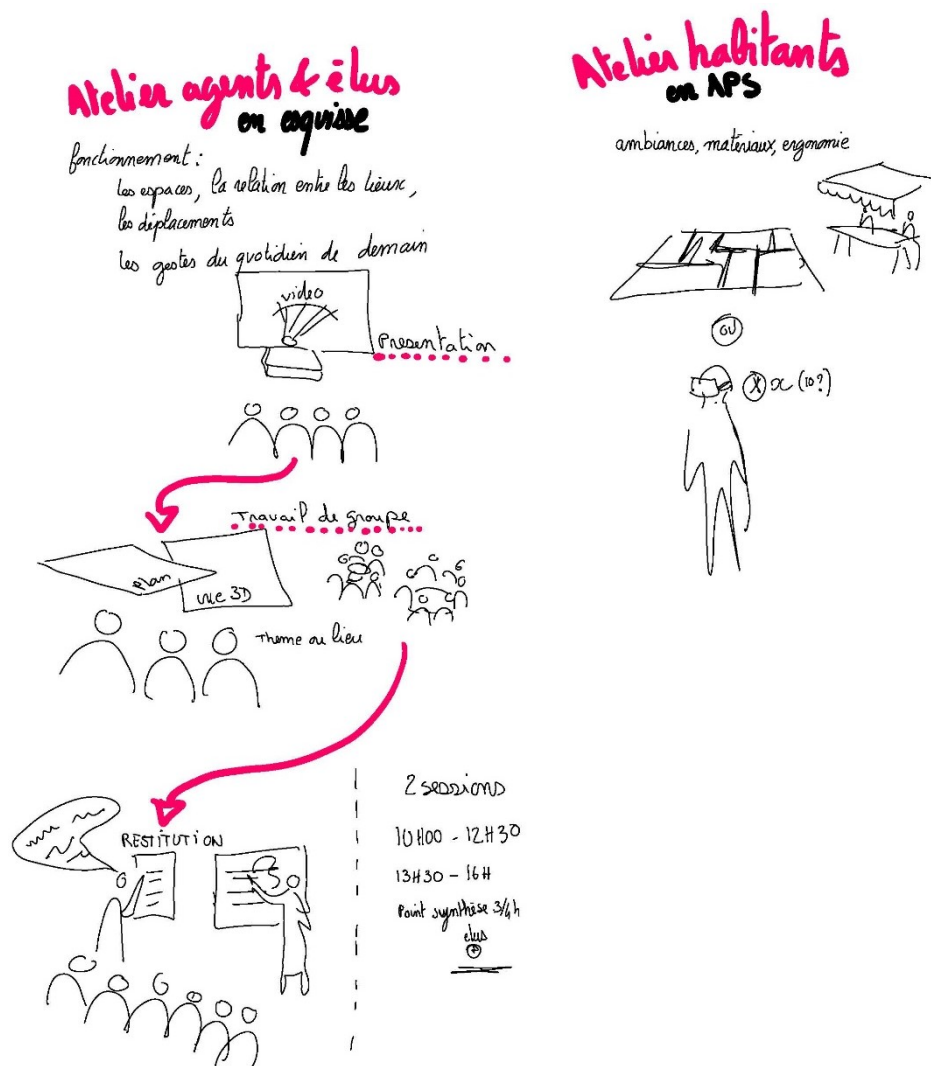 Atelier agents & élus
en esquisse
fonctionnement :
les espaces, la relation entre les lieux,
les déplacements
les gestes du quotidien de demain
video
Presentation
Travail de groupe
plan
vue 3D
Theme ou lieu
RESTITUTION
2 sessions
10H00 - 12H30
13H30 - 16H
Point synthèse 3/4h
elus
Atelier habitants
en APS
ambiances, matériaux, ergonomie
ou
X x (10?)